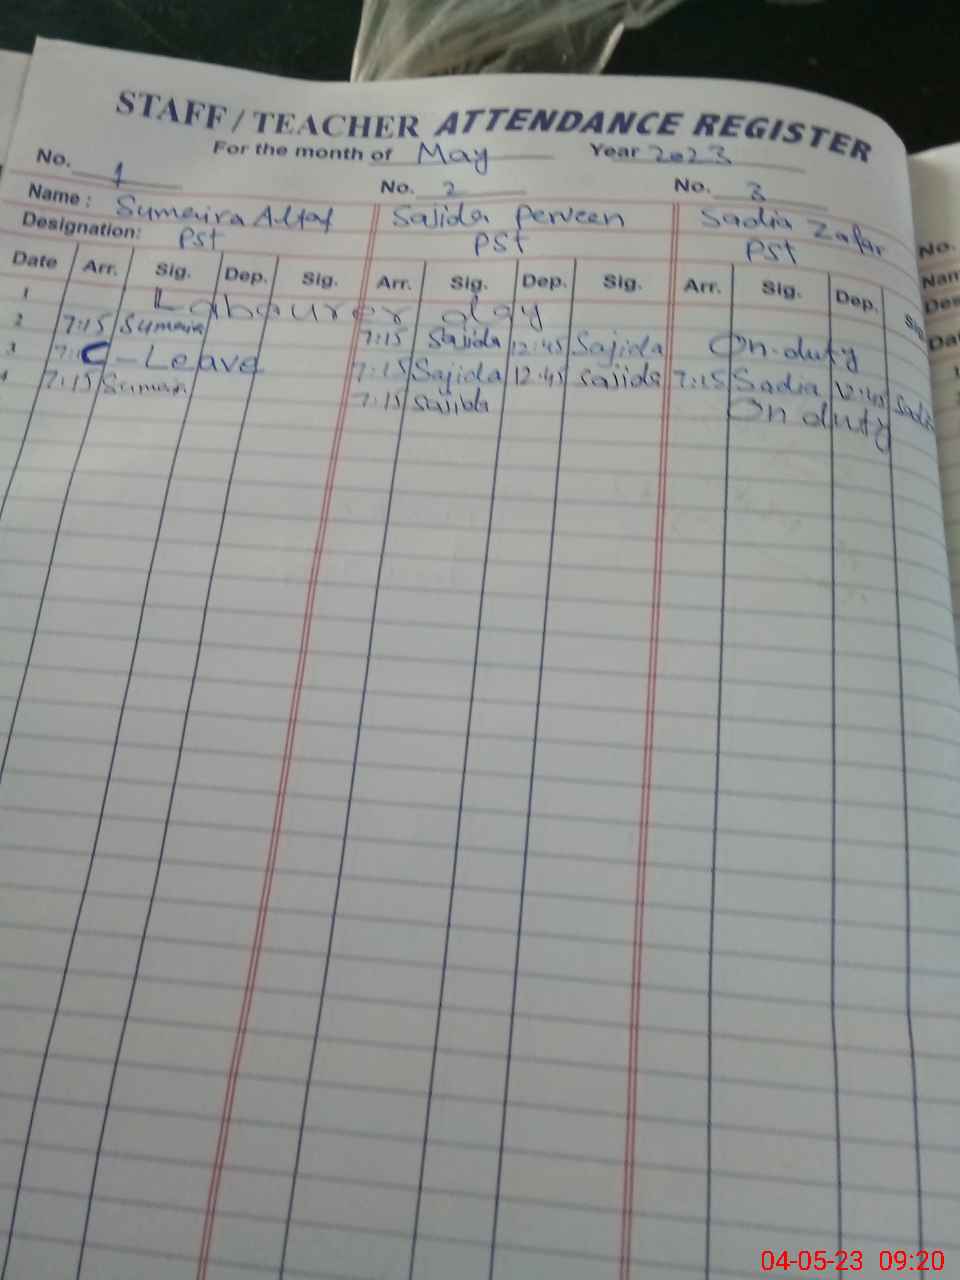 STAFF / TEACHER ATTENDANCE REGISTER
For the month of May Year 2023
No. 1 No. 2 No. 3
Name : Sumaira Altaf Sajida perveen Sadia Zafar
Designation: PST PST PST
Date Arr. Sig. Dep. Sig. Arr. Sig. Dep. Sig. Arr. Sig. Dep. Sig
1 Labourer day
2 7:15 Sumaira 7:15 Sajida 12:45 Sajida On-duty
3 C-Leave 7:15 Sajida 12:45 Sajida 7:15 Sadia 12:45 Sadia
4 7:15 Sumaira 7:15 Sajida On duty
No.
Nam
Des
Dat
04-05-23 09:20